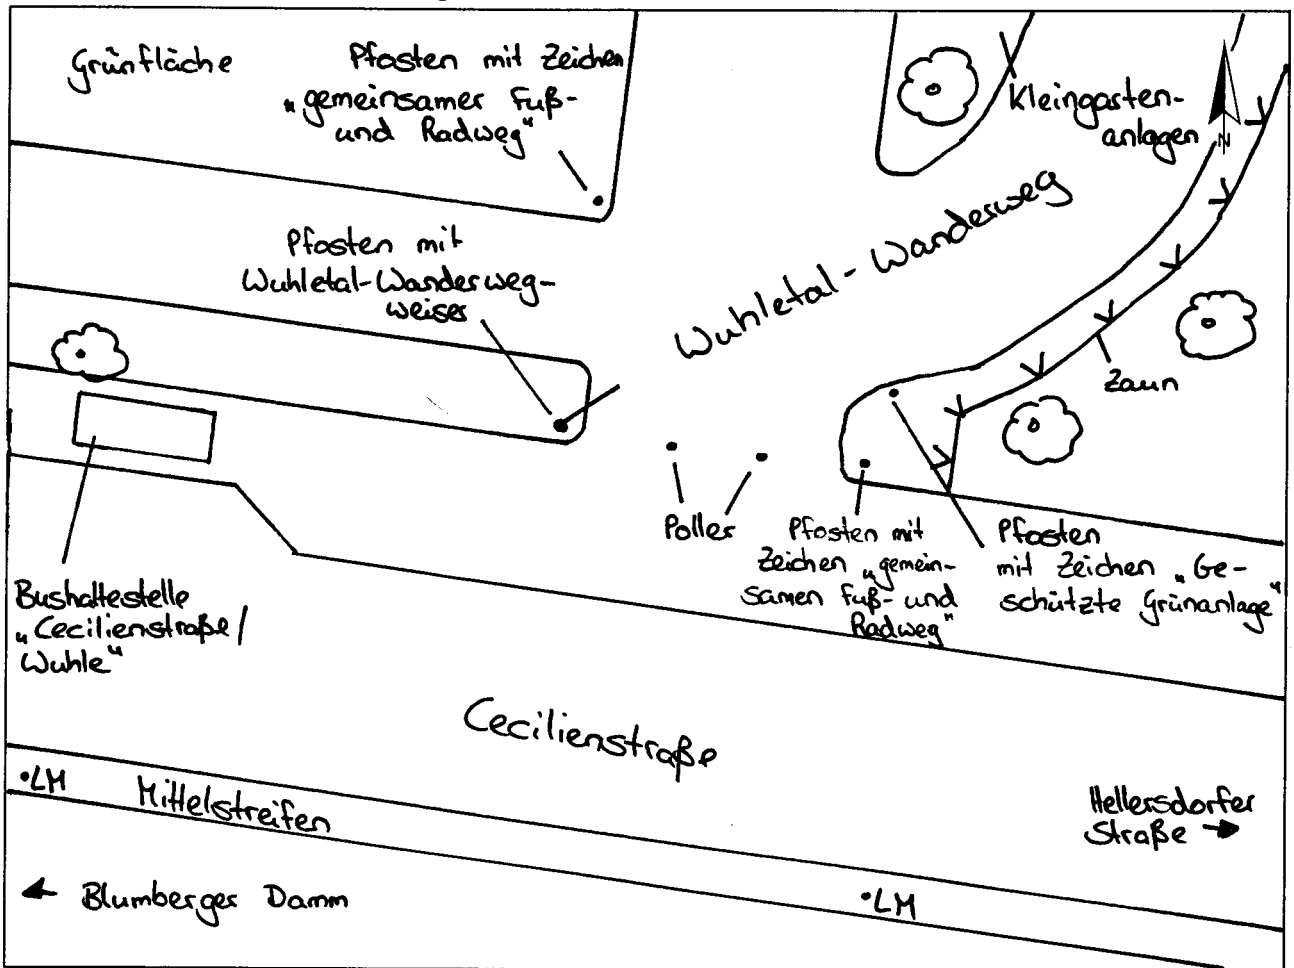 Grünfläche
Pfosten mit Zeichen
„gemeinsamer Fuß-
und Radweg“
Kleingarten-
anlagen
N
Pfosten mit
Wuhletal-Wanderweg-
weiser
Wuhletal-Wanderweg
Zaun
Poller
Pfosten mit
Zeichen „gemein-
samen Fuß- und
Radweg“
Pfosten
mit Zeichen „Ge-
schützte Grünanlage“
Bushaltestelle
„Cecilienstraße/
Wuhle“
Cecilienstraße
LM
Mittelstreifen
Hellersdorfer
Straße
Blumberger Damm
LM